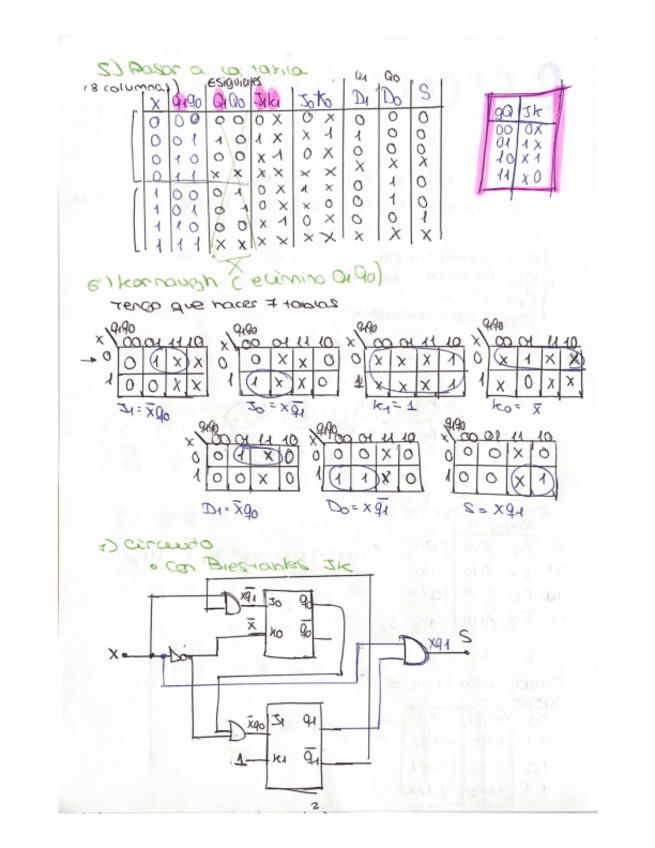 5.) Pasar a la tabla
(8 columnas)
ESiguientes Q1 Q0
X q1q0 Q1Q0 J1K1 J0K0 D1 D0 S
0 00 0 0 0 X 0 X 0 0 0
0 0 1 1 0 1 X X 1 1 0 0
0 1 0 0 0 X 1 0 X 0 0 0
0 1 1 X X X X X X X X X
1 0 0 0 1 0 X 1 X 0 1 0
1 0 1 0 1 0 X X 0 0 1 0
1 1 0 0 0 X 1 0 X 0 0 1
1 1 1 X X X X X X X X X
X
qQ JK
00 0X
01 1X
10 X1
11 X0
6) Karnaugh (elimino Q1Q0)
Tengo que hacer 7 tablas
X q1q0 00 01 11 10
→ 0 0 1 X X
1 0 0 X X
J1 = X̅q0
X q1q0 00 01 11 10
0 0 X X 0
1 1 X X 0
J0 = Xq̅1
X q1q0 00 01 11 10
0 X X X 1
1 X X X 1
K1 = 1
X q1q0 00 01 11 10
0 X 1 X X
1 X 0 X X
K0 = X̅
X q1q0 00 01 11 10
0 0 1 X 0
1 0 0 X 0
D1 = X̅q0
X q1q0 00 01 11 10
0 0 0 X 0
1 1 1 X 0
D0 = Xq̅1
X q1q0 00 01 11 10
0 0 0 X 0
1 0 0 X 1
S = Xq1
7) Circuito
• Con Biestables JK
Xq̅1 J0 q0
X̅ K0 q̅0
X
Xq1 S
X̅q0 J1 q1
1 K1 q̅1
2